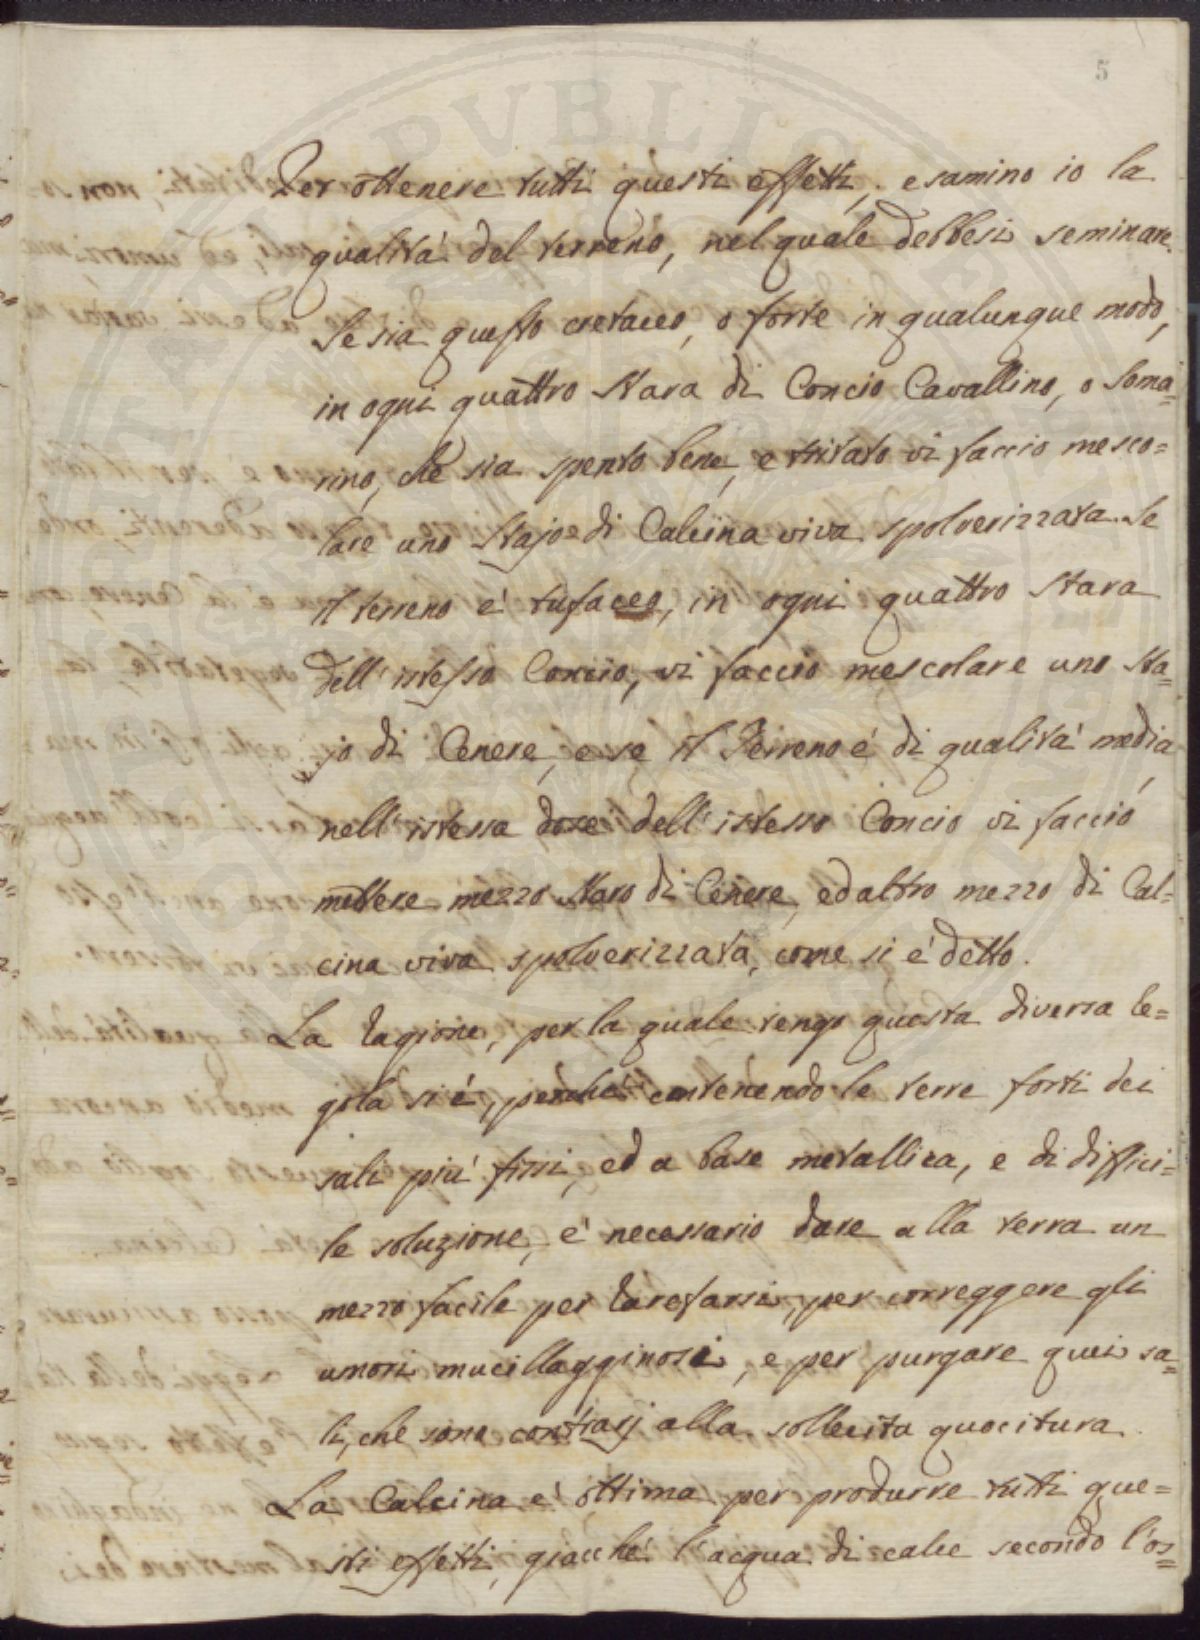 5
Per ottenere tutti questi effetti, esamino io la
qualità del terreno, nel quale debbesi seminare.
Se sia questo cretaceo, o forte in qualunque modo,
in ogni quattro Stara di Concio Cavallino, o Soma=
rino, che sia spento bene, e tritato vi faccio mesco=
lare uno Stajo di Calcina viva spolverizzata. Se
il terreno é tufaceo, in ogni quattro Stara
dell'istesso Concio, vi faccio mescolare uno Sta=
jo di Cenere, e se il Terreno é di qualità media,
nell'istessa dose dell'istesso Concio vi faccio
mettere mezzo Staro di Cenere, ed altro mezzo di Cal=
cina viva spolverizzata, come si é detto.
La ragione, per la quale tengo questa diversa re=
gola si é, perché contenendo le terre forti dei
sali più fissi, ed a base metallica, e di diffici=
le soluzione, é necessario dare alla terra un
mezzo facile per rarefarsi, per correggere gli
umori mucillagginosi, e per purgare quei sa=
li, che sono contrarj alla sollecita quocitura.
La Calcina é ottima per produrre tutti que=
sti effetti, giacché l'acqua di calce secondo l'os=